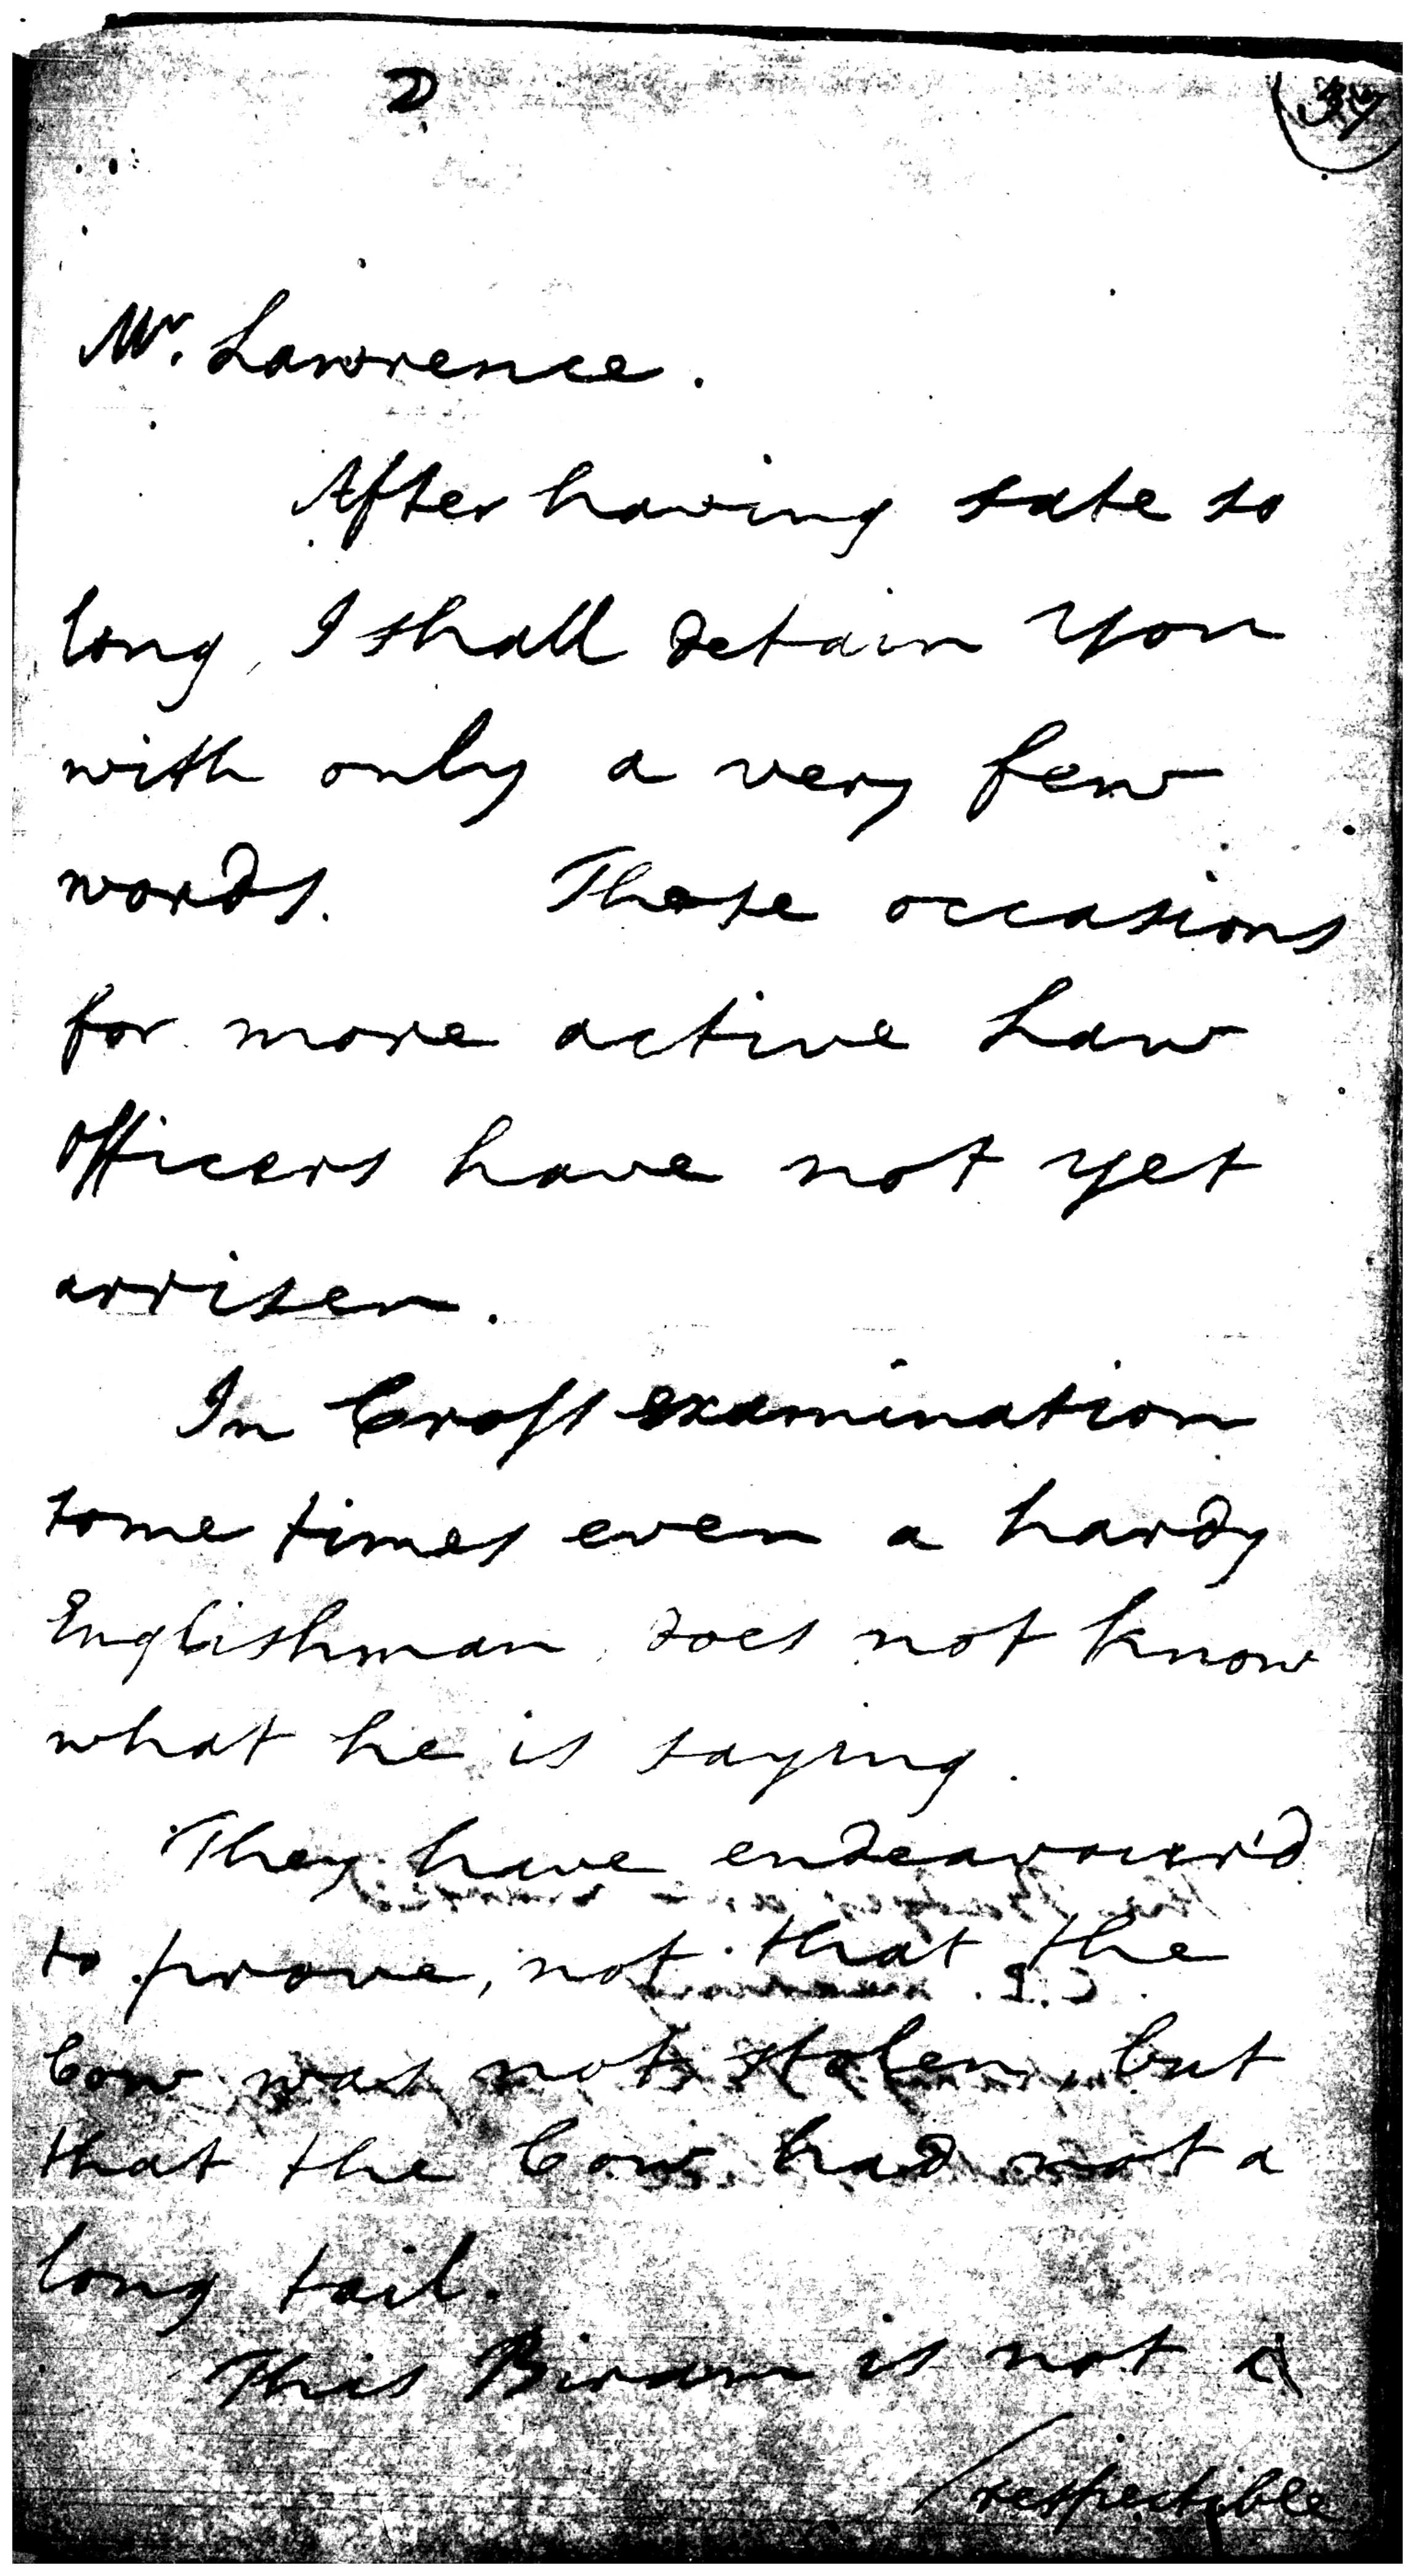 2
37
Mr. Lawrence.
After having sate so
long, I shall detain you
with only a very few
words. These occasions
for more active Law
Officers have not yet
arrisen.
In Cross examination
some times even a hardy
Englishman does not know
what he is saying.
They have endeavour'd
to prove, not that the
Cow was not stolen, but
that the Cow had not a
long tail.
This Biram is not a
respectible